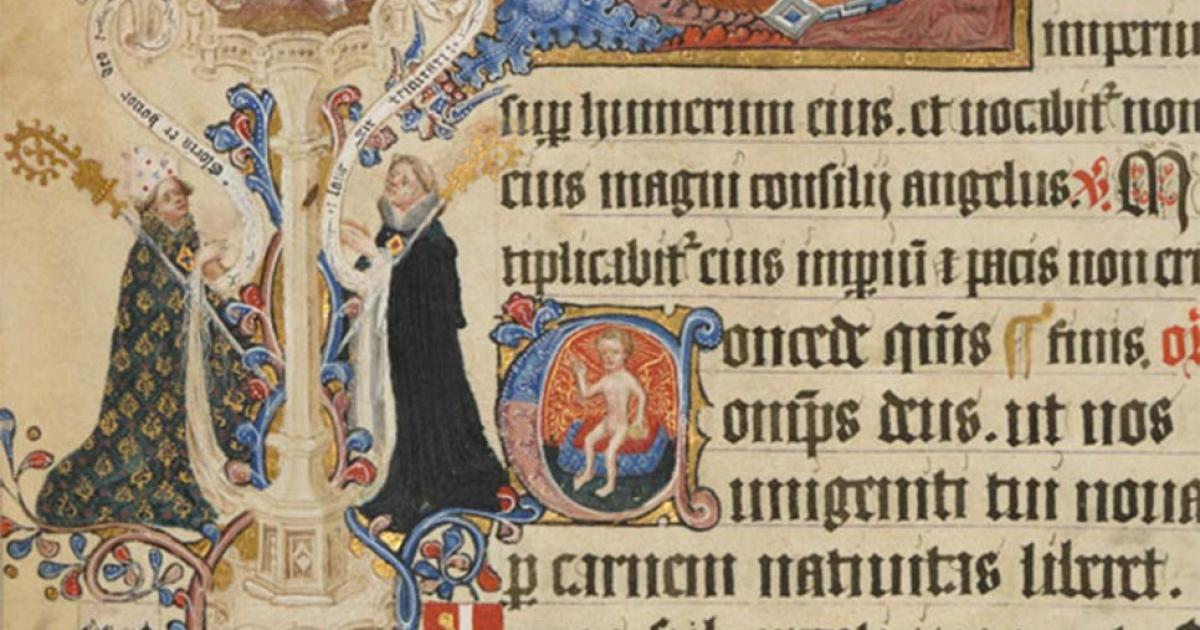 Gloria et honor deo
et laus sit trinitati
imperiu
suꝑ humerum eius. et uocabit᷑ non
eius magni consilij angelus. V. M
tiplicabit᷑ eius imꝑiū ⁊ pacis non er
Concede qūs finis.
omp̄s deus. ut nos
unigeniti tui noua
ꝑ carnem natiuitas liberet.